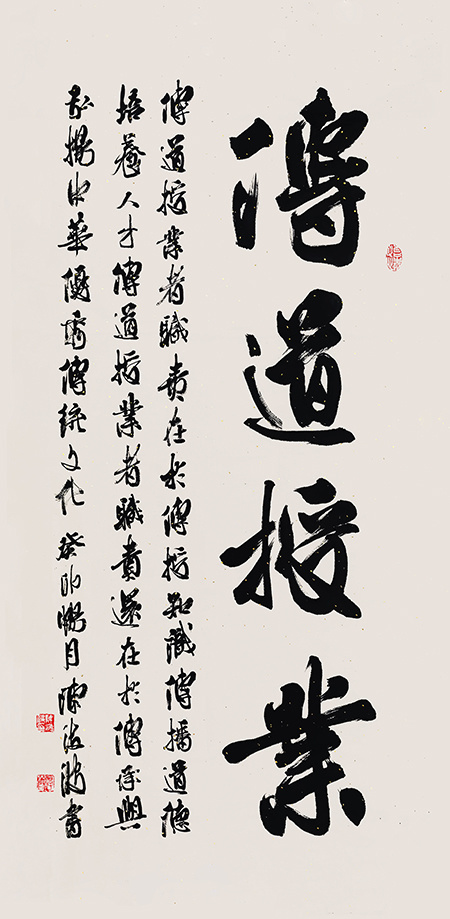 傳道授業
傳道授業者職責在於傳授知識傳播道德
培養人才傳道授業者職責還在於傳承與
弘揚中華優秀傳統文化癸卯臘月書